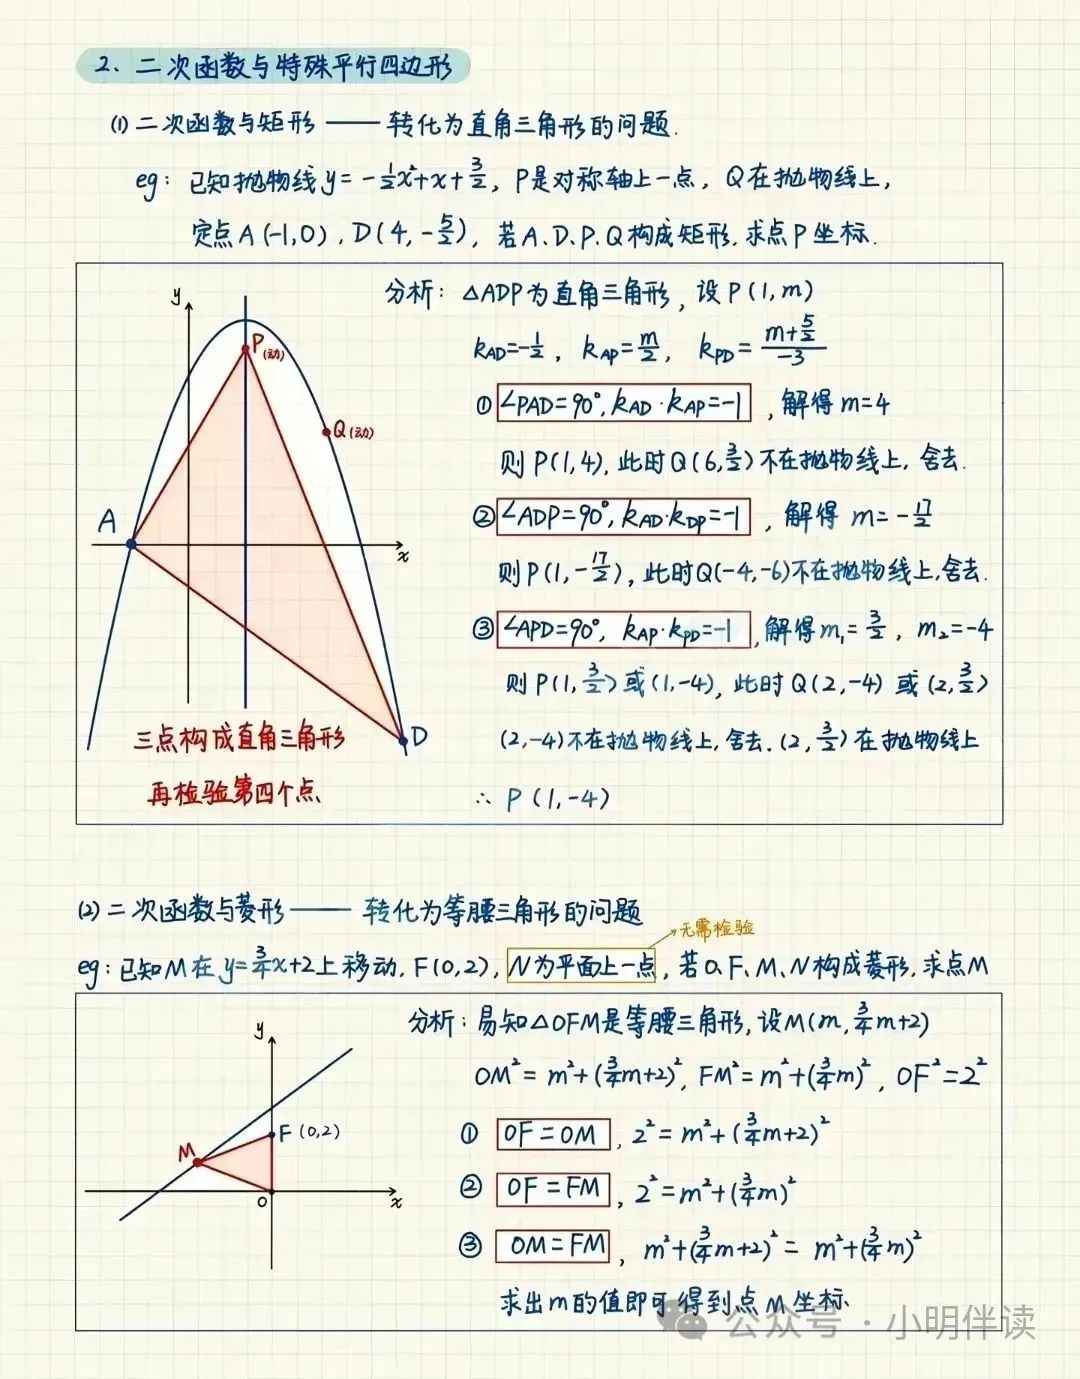 2、二次函数与特殊平行四边形
(1) 二次函数与矩形 —— 转化为直角三角形的问题.
eg: 已知抛物线y=-½x²+x+3/2, P是对称轴上一点, Q在抛物线上,
定点A(-1,0), D(4,-5/2), 若A、D、P、Q构成矩形, 求点P坐标.
分析: △ADP为直角三角形, 设P(1,m)
k_AD=-½, k_AP=m/2, k_PD=(m+5/2)/-3
① ∠PAD=90°, k_AD·k_AP=-1, 解得m=4
则P(1,4), 此时Q(6,3/2)不在抛物线上, 舍去.
② ∠ADP=90°, k_AD·k_DP=-1, 解得 m=-17/2
则P(1,-17/2), 此时Q(-4,-6)不在抛物线上,舍去.
③ ∠APD=90°, k_AP·k_PD=-1, 解得m₁=3/2, m₂=-4
则P(1,3/2)或(1,-4), 此时Q(2,-4)或(2,3/2)
(2,-4)不在抛物线上,舍去.(2,3/2)在抛物线上
∴ P(1,-4)
y
P(动)
Q(动)
A
x
D
三点构成直角三角形
再检验第四个点
(2) 二次函数与菱形 —— 转化为等腰三角形的问题
无需检验
eg: 已知M在y=¾x+2上移动, F(0,2), N为平面上一点, 若O、F、M、N构成菱形, 求点M
分析: 易知△OFM是等腰三角形, 设M(m,¾m+2)
OM²=m²+(¾m+2)², FM²=m²+(¾m)², OF²=2²
① OF=OM, 2²=m²+(¾m+2)²
② OF=FM, 2²=m²+(¾m)²
③ OM=FM, m²+(¾m+2)²=m²+(¾m)²
求出m的值即可得到点M坐标.
y
F(0,2)
M
O
x
公众号·小明伴读